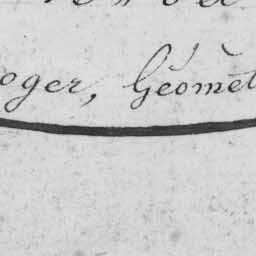 oger, Géomét